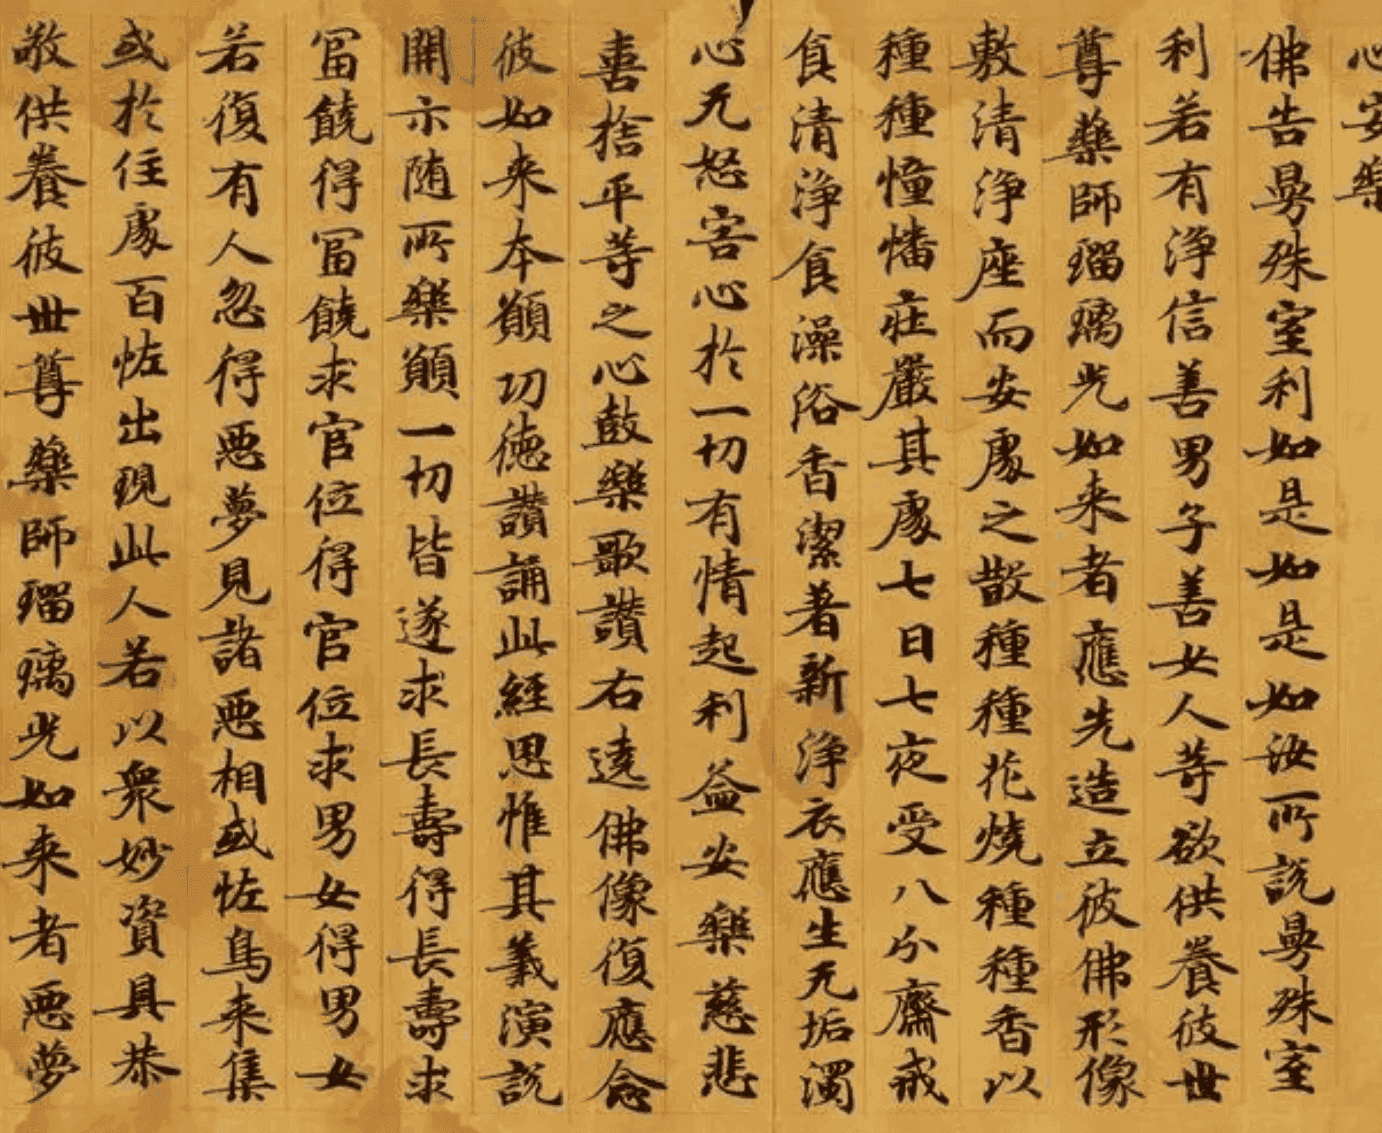 心安樂
佛告曼殊室利如是如是如汝所說曼殊室
利若有淨信善男子善女人等欲供養彼世
尊藥師瑠璃光如来者應先造立彼佛形像
敷清淨座而安處之散種種花燒種種香以
種種幢幡莊嚴其處七日七夜受八分齋戒
食清淨食澡浴香潔著新淨衣應生无垢濁
心无怒害心於一切有情起利益安樂慈悲
喜捨平等之心鼓樂歌讃右遶佛像復應念
彼如来本願功德讃誦此經思惟其義演說
開示随所樂願一切皆遂求長壽得長壽求
冨饒得冨饒求官位得官位求男女得男女
若復有人忽得惡夢見諸惡相或恠鳥来集
或於住處百恠出現此人若以衆妙資具恭
敬供養彼世尊藥師瑠璃光如来者惡夢